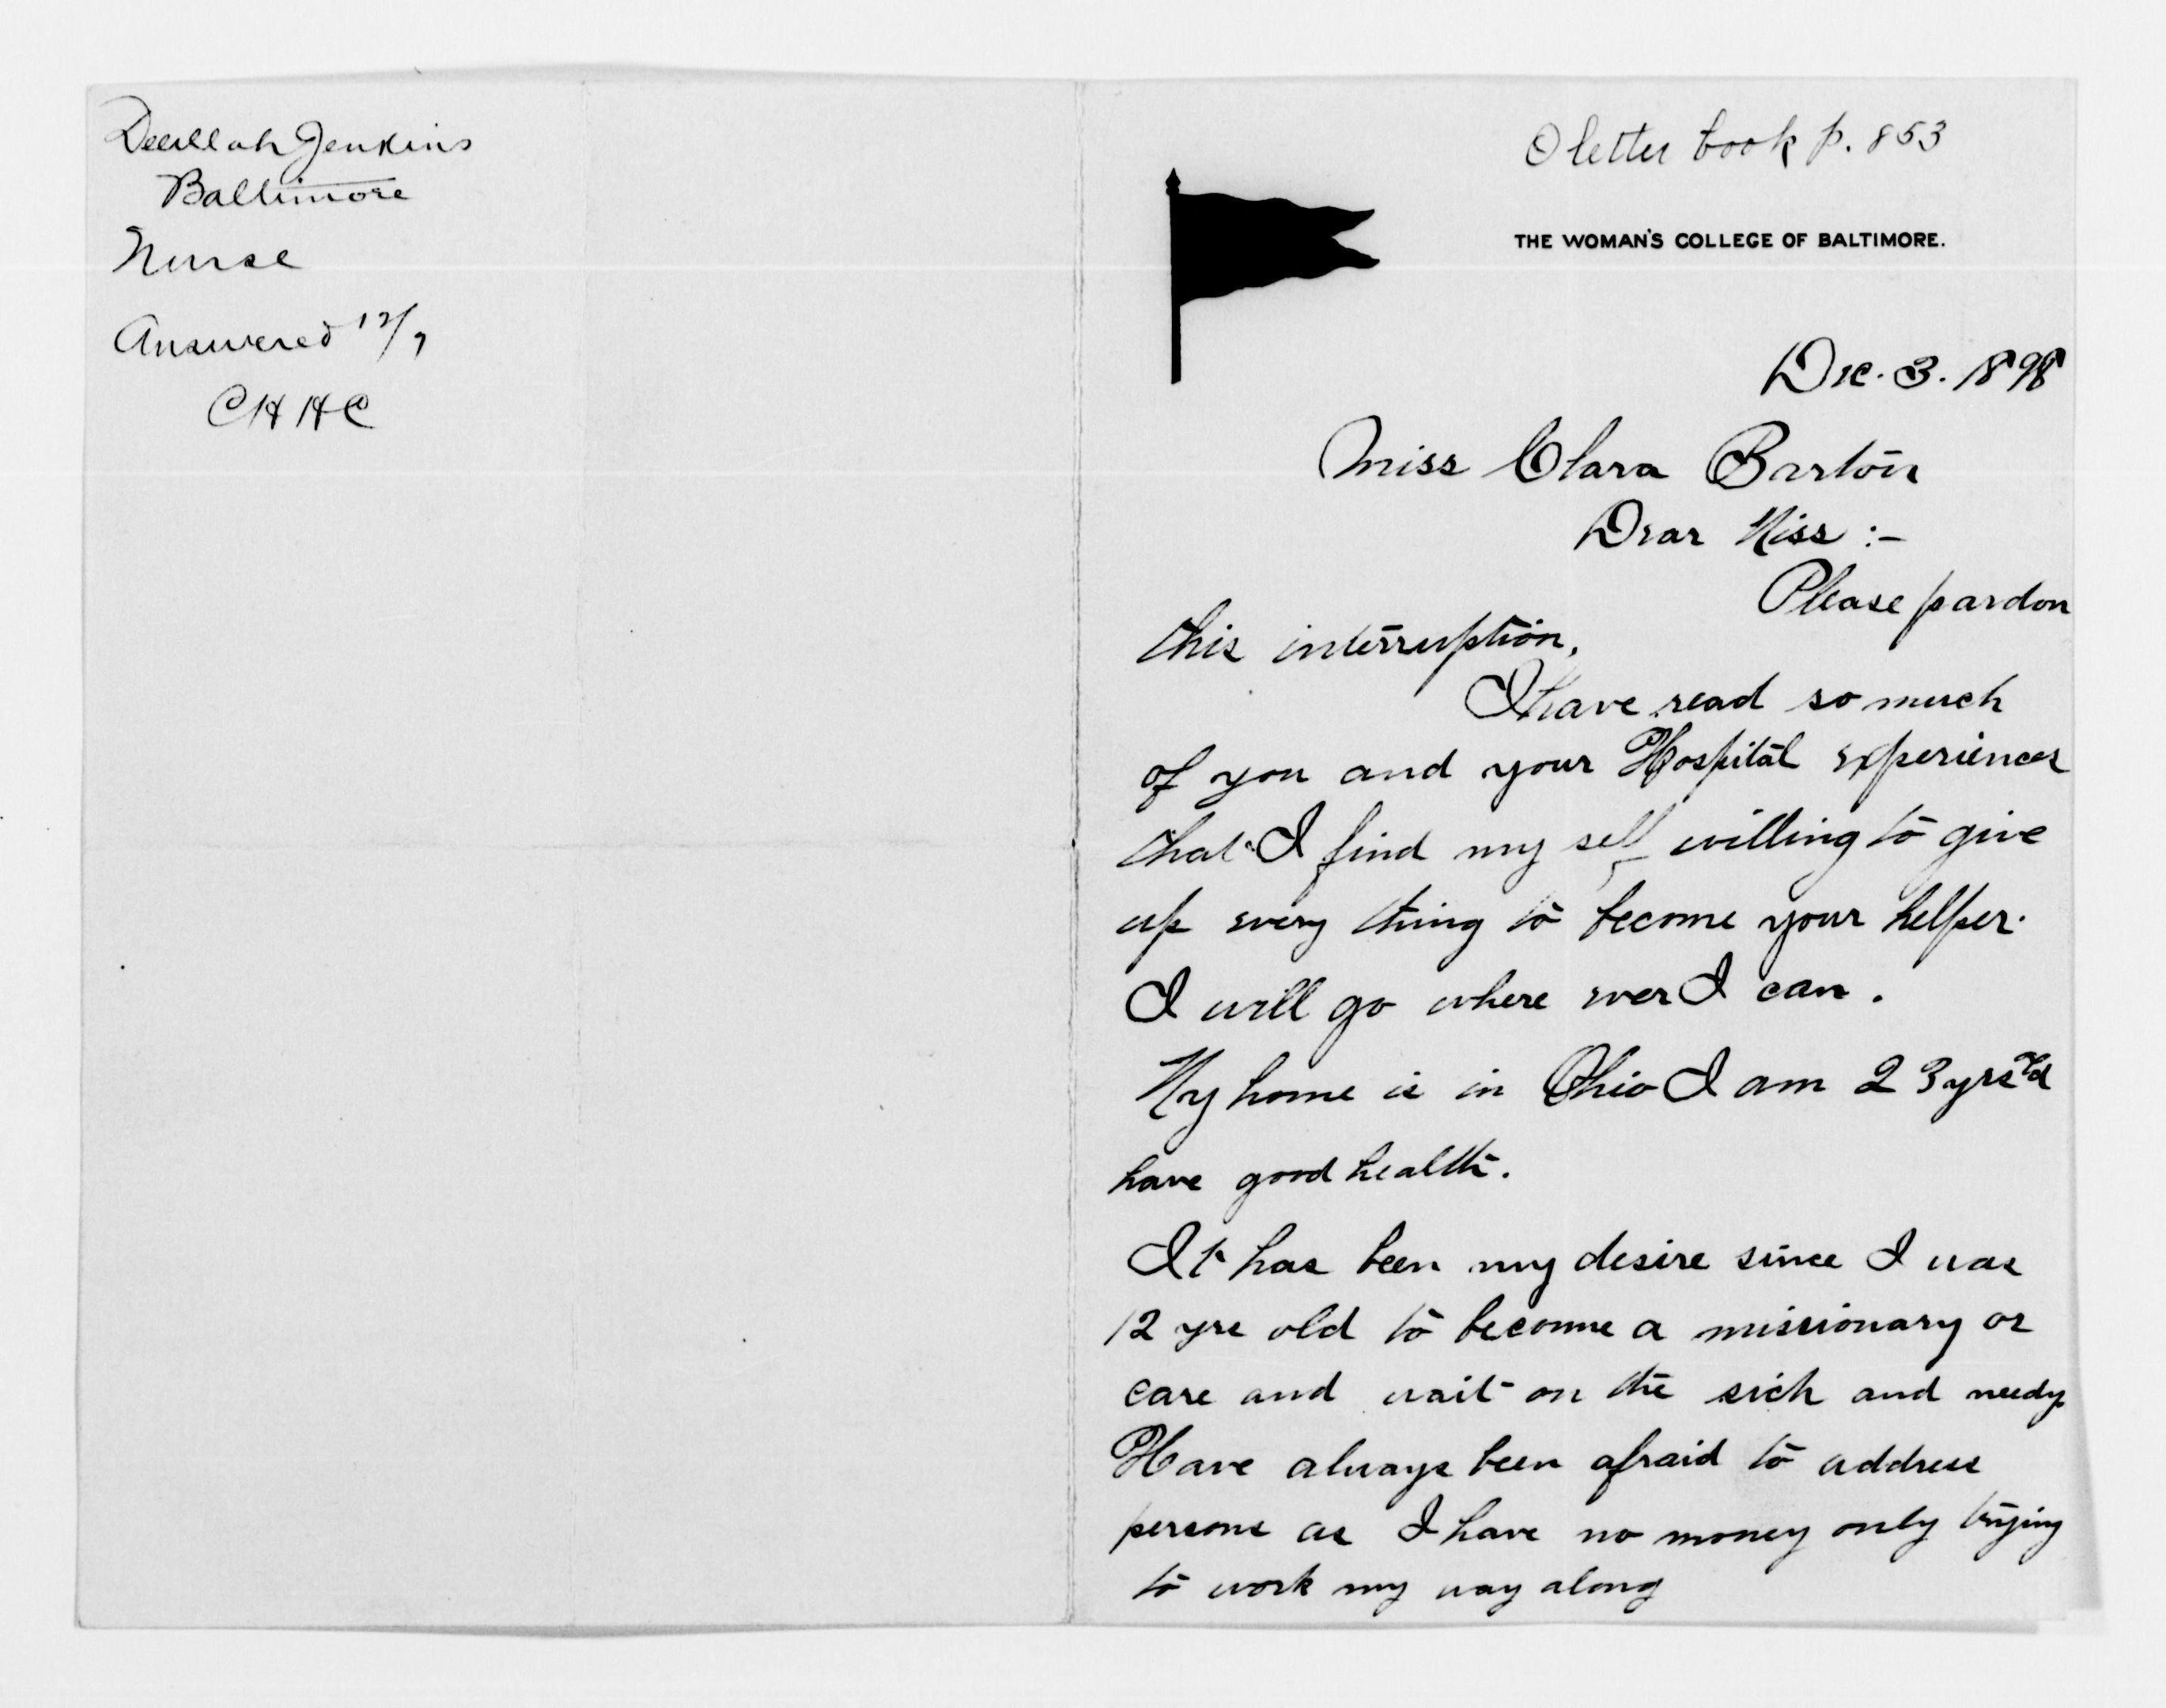 Jenkins
Baltimore
Nurse
Answered 12/7
CHHC
letter book p. 853
THE WOMAN'S COLLEGE OF BALTIMORE.
Dec. 3. 1898
Miss Clara Barton
Dear Miss :-
Please pardon
this interruption.
I have read so much
of you and your Hospital experiences
that I find my self willing to give
up every thing to become your helper.
I will go where ever I can.
My home is in Ohio I am 23 yrs old
have good health.
It has been my desire since I was
12 yrs old to become a missionary or
care and wait on the sick and needy
Have always been afraid to address
persons as I have no money only trying
to work my way along